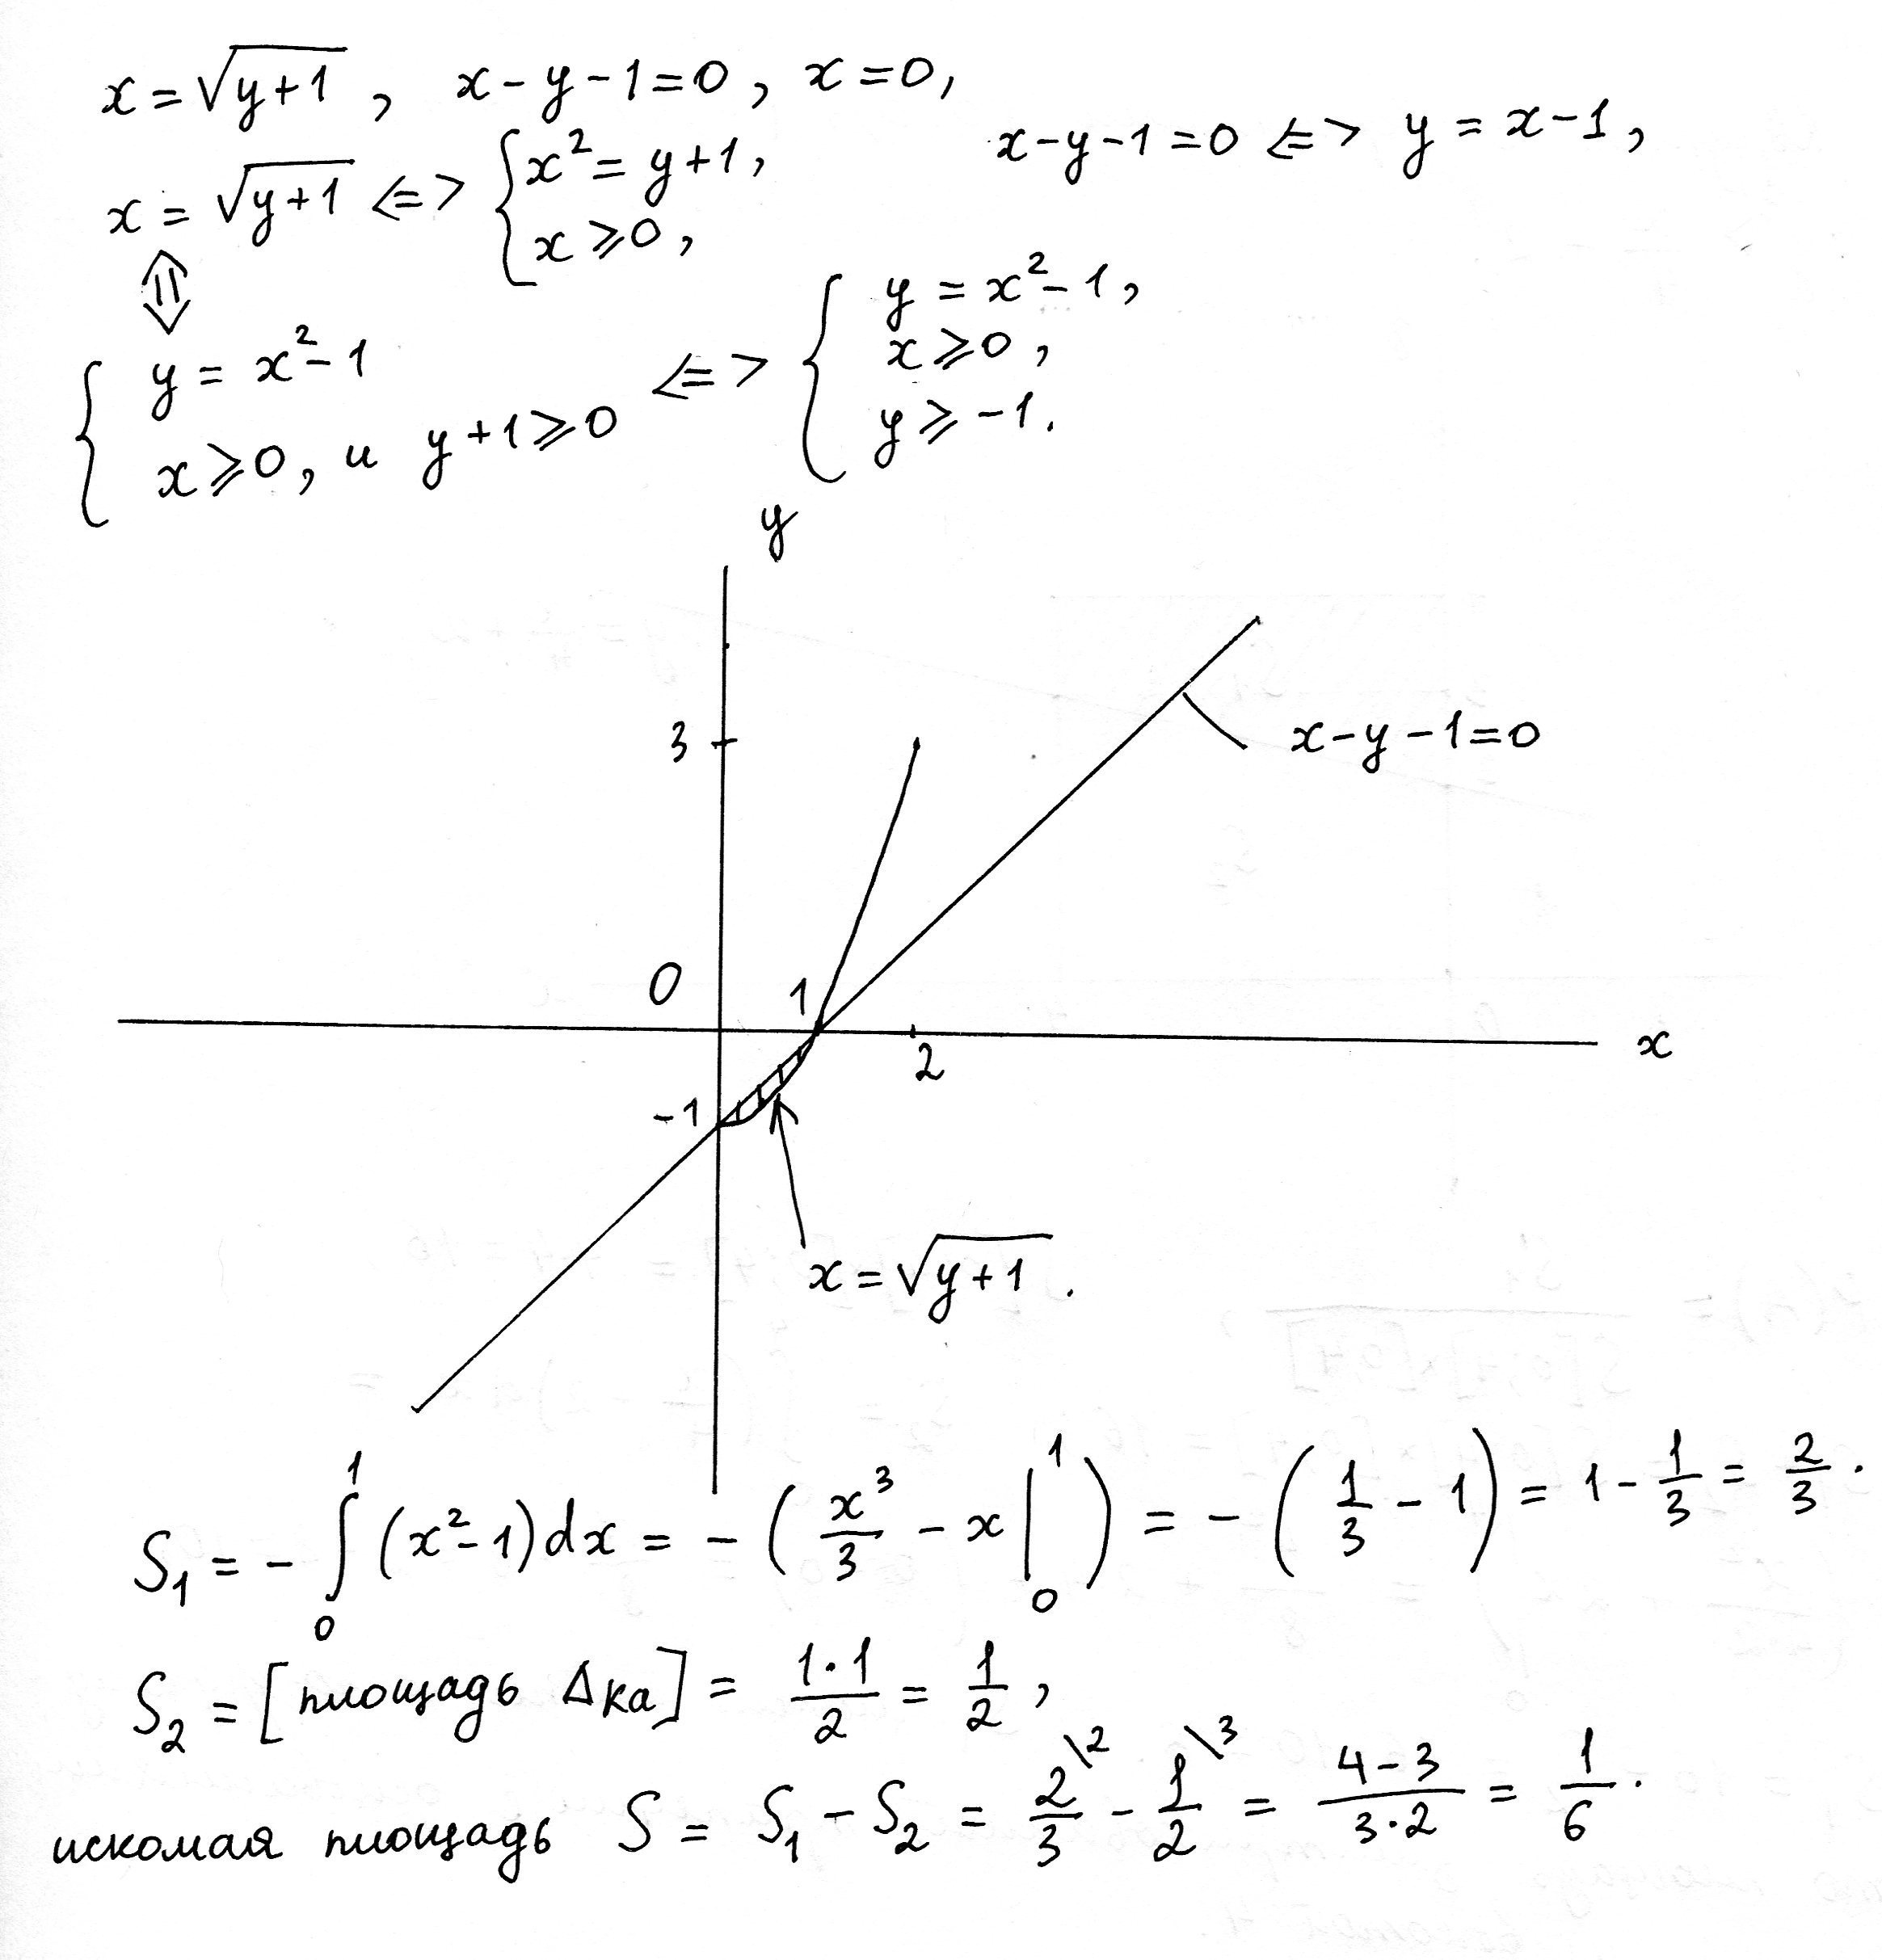 x = √(y+1) , x - y - 1 = 0 , x = 0,
x = √(y+1) <=> { x² = y+1, x ⩾ 0,
x - y - 1 = 0 <=> y = x - 1,
⇕
{ y = x² - 1 x ⩾ 0, и y + 1 ⩾ 0 <=> { y = x² - 1, x ⩾ 0, y ⩾ -1.
y
3
x - y - 1 = 0
0
1
2
x
-1
x = √(y+1) .
S₁ = - ∫₀¹ (x² - 1) dx = - ( x³/3 - x |₀¹ ) = - ( 1/3 - 1 ) = 1 - 1/3 = 2/3 .
S₂ = [площадь Δка] = 1·1/2 = 1/2 ,
искомая площадь S = S₁ - S₂ = 2/3 \2 - 1/2 \3 = 4-3/3·2 = 1/6 .